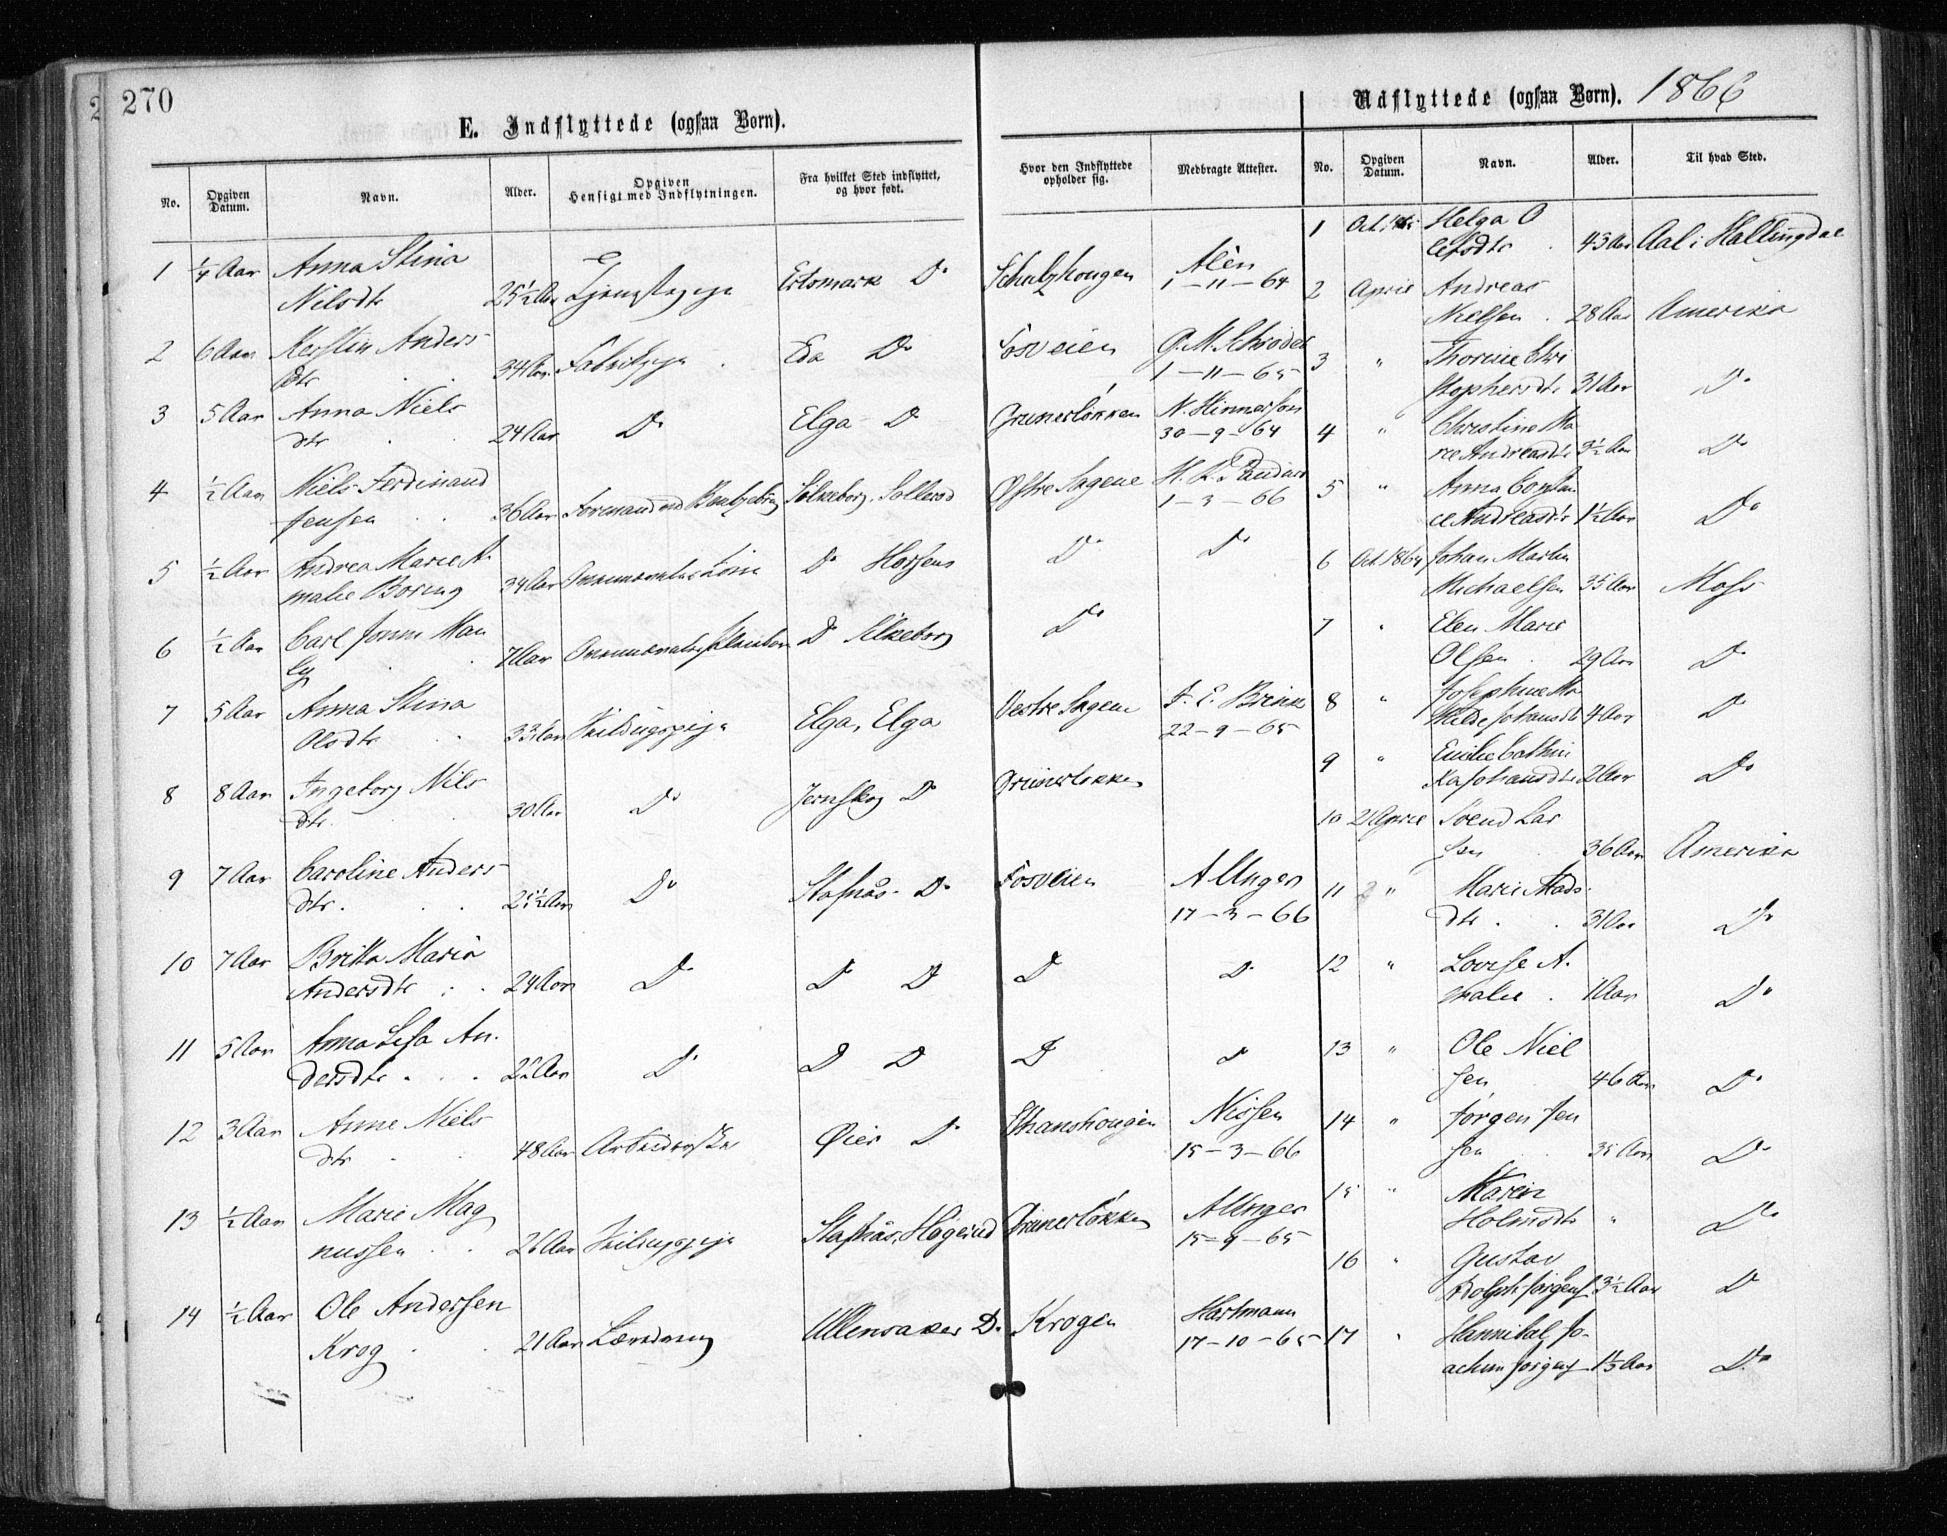 270
E. Indflyttede (ogsaa Børn).
No. Opgiven Datum. Navn. Alder. Opgiven Hensigt med Indflytningen. Fra hvilket Sted indflyttet, og hvor født. Hvor den Indflyttede opholder sig. Medbragte Attester.
1 1/4 Aar Anna Stina 
Nilsdtr 25 1/2 Aar Tjenestepige D° 1-11-64
2 6 Aar Kerstin Anders
dtr 34 Aar Fabrikpige Eda D° Fosveien G. M. Schrøder
1-11-65
3 5 Aar Anna Niels
dtr 24 Aar D° Elga D° Grunerløkken N. Hinnerson
30-9-64
4 1/2 Aar Niels Ferdinand
Jensen 36 Aar Silkeborg, Sollerød Østre Sagene
1-3-66
5 1/2 Aar Andrea Marie A-
malie Boring 34 Aar D° Horsens D° D°
6 1/2 Aar Carl Jonni Man
gy 7 Aar D° Silkeborg D°
7 5 Aar Anna Stina
Olsdtr 33 Aar Elga, Elga Vestre Sagene F. E. Brink
22-9-65
8 8 Aar Ingeborg Nils
dtr. 30 Aar D° Jernskog D° Grünerløkken
9 7 Aar Caroline Anders
dtr. 25 1/2 Aar D° Stafnäs D° Fosveien A Unger
17-3-66
10 7 Aar Britta Maria
Andersdtr 24 Aar D° D° D° D° D°
11 5 Aar Anna Lisa An-
dersdtr 22 Aar D° D° D° D° D°
12 3 Aar Anne Niels
dtr 48 Aar Øier D° Skanshougen Nissen
15-3-66
13 1/2 Aar Marie Mag
nussen 26 Aar Stafnäs, Høgerud Grunerløkken A Unger
15-9-65
14 1/2 Aar Ole Andersen
Krog 21 Aar Læredreng Ullensaker D° Krogen Hartmann
17-10-65
Udflyttede (ogsaa Børn). 1866
No. Opgiven Datum. Navn. Alder. Til hvad Sted.
1 Helga O
lefsdtr 43 Aar Aal i Hallingdal
2 April Andreas
Nielsen 28 Aar Amerika
3 " Thorine Chri
stophersdtr 31 Aar D°
4 " Christine Ma
rie Andreasdtr 3 1/2 Aar D°
5 " Anna Constan
ce Andreasdtr 1 1/2 Aar D°
6 Oct 1864 Johan Martin
Michaelsen 35 Aar Moss
7 " Elen Marie
Olsen 29 Aar D°
8 " Josephine Ma
thilde Johansdtr 4 Aar D°
9 " Emilie Cathin
ka Johansdtr 2 Aar D°
10 21 April Svend Lar
sen 36 Aar Amerika
11 " Marie Mads
dtr 31 Aar D°
12 " Lovise A-
malie 1 Aar D°
13 " Ole Niel
sen 46 Aar D°
14 " Jørgen Jen
sen 35 Aar D°
15 " Maren
Holmsdtr " D°
16 " Gustav
Adolph Jørgens 3 1/2 Aar D°
17 " Hannibal Jo-
achim Jørgens D°